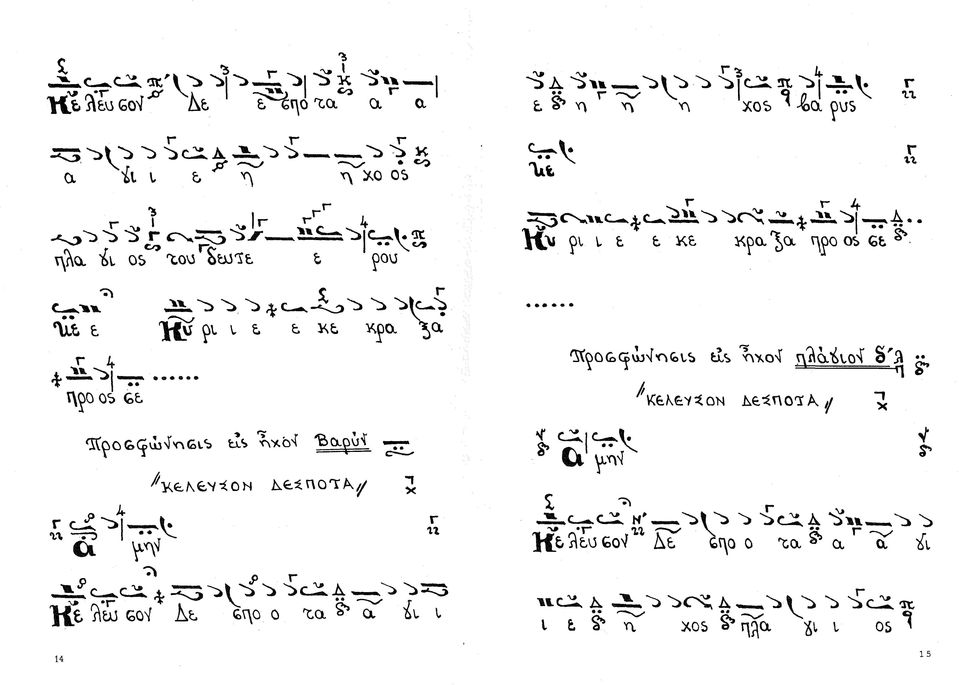 Κε λευ σον Δε ε σπο τα α α
α γι ι ε η η χο ος
πλα γι ος του δευ τε ε ρου
Κε ε Κυ ρι ι ε ε κε κρα ξα
προ ος σε ......
Προσφώνησις εἰς ἦχον Βαρύν
"ΚΕΛΕΥΣΟΝ ΔΕΣΠΟΤΑ"
Α μην
Κε λευ σον Δε σπο ο τα α γι ι
14
ε η η η χος βα ρυς
Κε
Κυ ρι ι ε ε κε κρα ξα προ ος σε ..
......
Προσφώνησις εἰς ἦχον πλάγιον δ΄
"ΚΕΛΕΥΣΟΝ ΔΕΣΠΟΤΑ"
Α μην
Κε λευ σον Δε σπο ο τα α α γι
ι ε η χος πλα γι ι ος
15